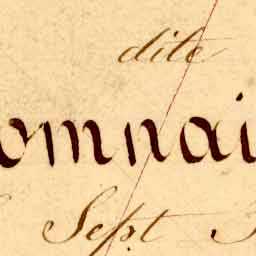 dite
omnai
Sept